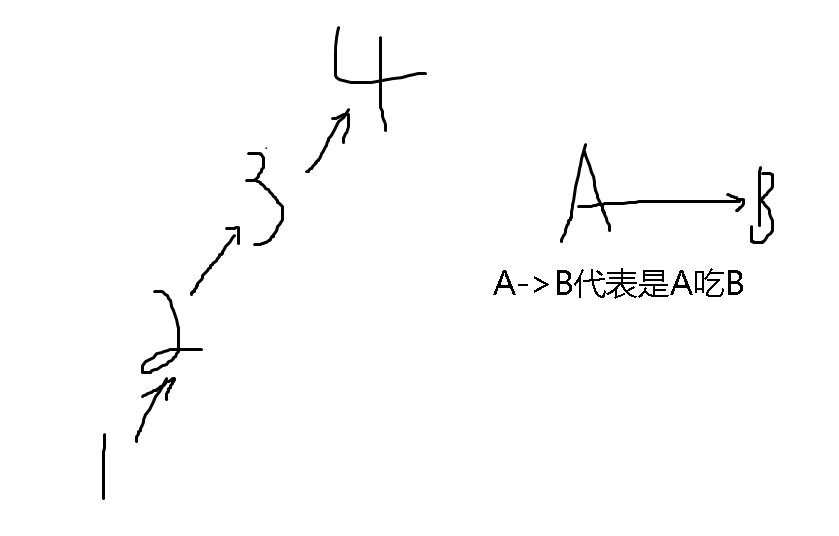 4
3
2
1
A
B
A->B代表是A吃B